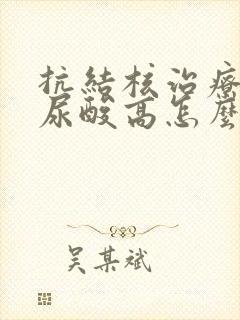 抗結核治療
尿酸高怎麼
吴某斌